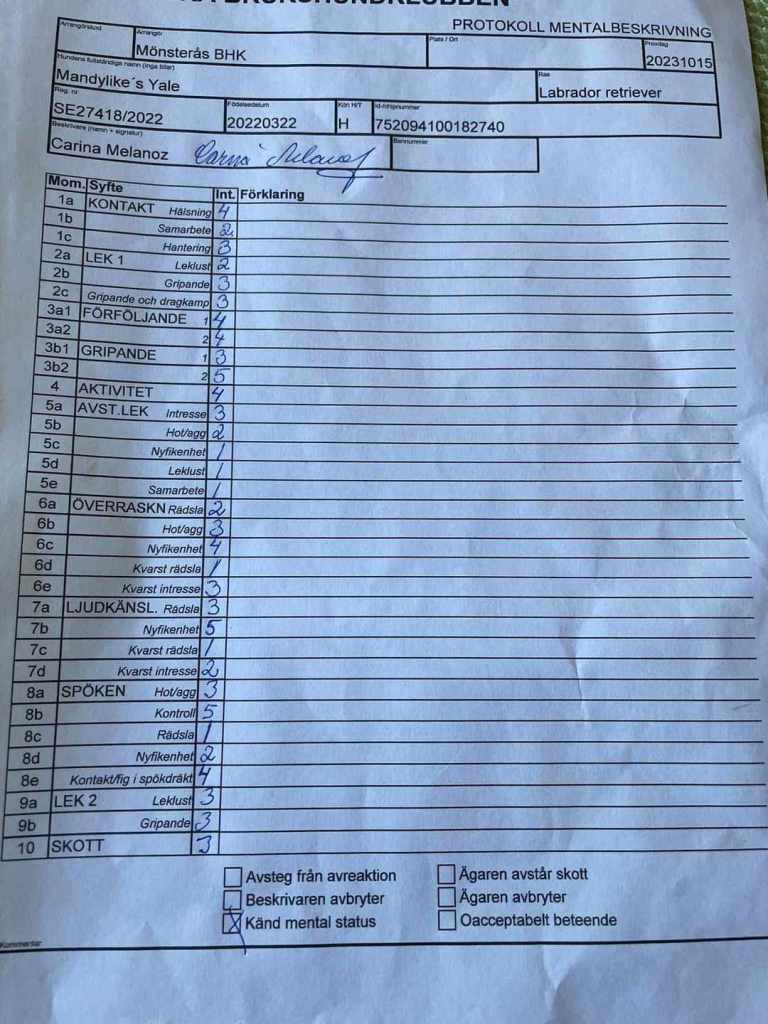 BRUKSHUNDKLUBBEN
PROTOKOLL MENTALBESKRIVNING
Arrangörskod Arrangör Mönsterås BHK Plats / Ort Provdag 20231015
Hundens fullständiga namn (inga titlar) Mandylike´s Yale Ras Labrador retriever
Reg. nr SE27418/2022 Födelsedatum 20220322 Kön H/T H Id-nr/chipnummer 752094100182740
Beskrivare (namn + signatur) Carina Melanoz Carina Melanoz Bannummer
Mom. Syfte Int. Förklaring
1a KONTAKT Hälsning 4
1b Samarbete 2
1c Hantering 3
2a LEK 1 Leklust 2
2b Gripande 3
2c Gripande och dragkamp 3
3a1 FÖRFÖLJANDE 1 4
3a2 2 4
3b1 GRIPANDE 1 3
3b2 2 5
4 AKTIVITET 4
5a AVST.LEK Intresse 3
5b Hot/agg 2
5c Nyfikenhet 1
5d Leklust 1
5e Samarbete 1
6a ÖVERRASKN Rädsla 2
6b Hot/agg 3
6c Nyfikenhet 4
6d Kvarst rädsla 1
6e Kvarst intresse 3
7a LJUDKÄNSL. Rädsla 3
7b Nyfikenhet 5
7c Kvarst rädsla 1
7d Kvarst intresse 2
8a SPÖKEN Hot/agg 3
8b Kontroll 5
8c Rädsla 1
8d Nyfikenhet 2
8e Kontakt/fig i spökdräkt 4
9a LEK 2 Leklust 3
9b Gripande 3
10 SKOTT 3
Avsteg från avreaktion Ägaren avstår skott
Beskrivaren avbryter Ägaren avbryter
X Känd mental status Oacceptabelt beteende
Kommentar